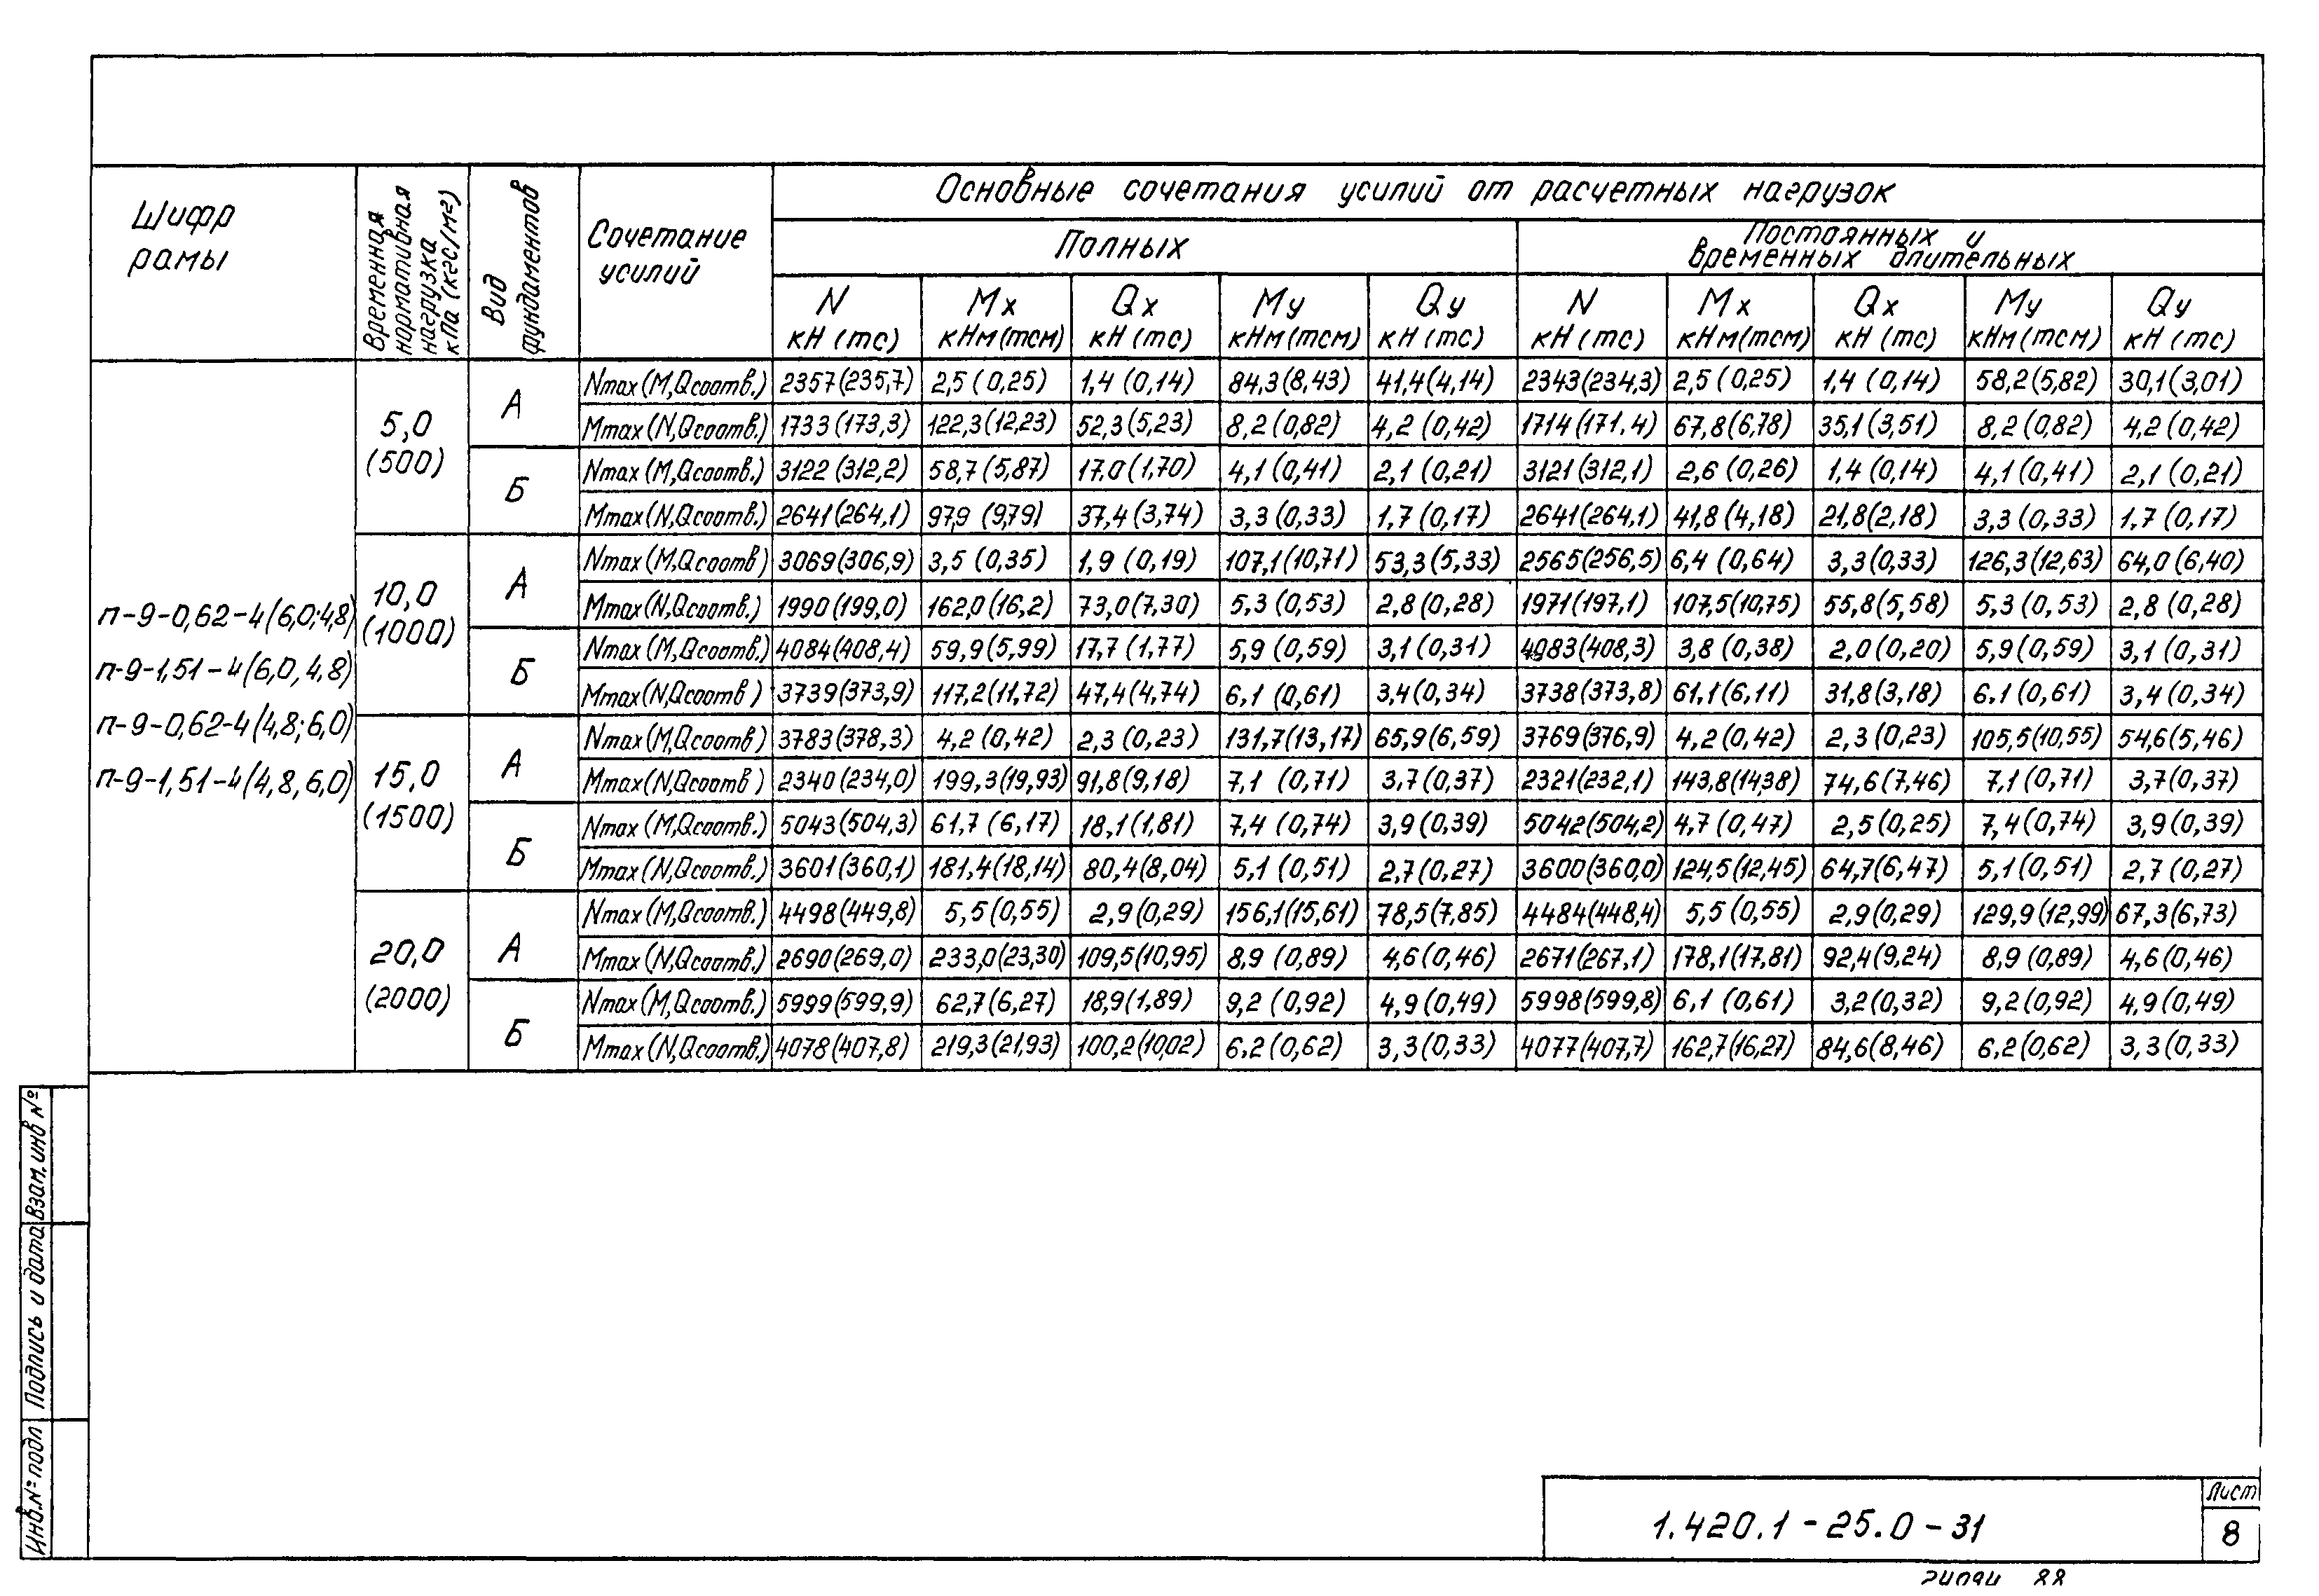 Шифр рамы
Временная нормативная нагрузка кПа (кгс/м²)
Вид фундаментов
Сочетание усилий
Основные сочетания усилий от расчетных нагрузок
Полных
Постоянных и временных длительных
N кН (тс) Mx кНм (тсм) Qx кН (тс) My кНм (тсм) Qy кН (тс) N кН (тс) Mx кНм (тсм) Qx кН (тс) My кНм (тсм) Qy кН (тс)
п-9-0,62-4(6,0;4,8)
п-9-1,51-4(6,0, 4,8)
п-9-0,62-4(4,8;6,0)
п-9-1,51-4(4,8, 6,0)
5,0 (500)
А
Nmax (M,Qсоотв.) 2357(235,7) 2,5 (0,25) 1,4 (0,14) 84,3(8,43) 41,4(4,14) 2343(234,3) 2,5 (0,25) 1,4 (0,14) 58,2(5,82) 30,1(3,01)
Mmax (N,Qсоотв.) 1733 (173,3) 122,3(12,23) 52,3(5,23) 8,2 (0,82) 4,2 (0,42) 1714(171,4) 67,8(6,78) 35,1(3,51) 8,2(0,82) 4,2(0,42)
Б
Nmax (M,Qсоотв.) 3122 (312,2) 58,7(5,87) 17,0(1,70) 4,1 (0,41) 2,1 (0,21) 3121(312,1) 2,6 (0,26) 1,4(0,14) 4,1(0,41) 2,1 (0,21)
Mmax (N,Qсоотв.) 2641(264,1) 97,9 (9,79) 37,4(3,74) 3,3(0,33) 1,7(0,17) 2641(264,1) 41,8(4,18) 21,8(2,18) 3,3 (0,33) 1,7(0,17)
10,0 (1000)
А
Nmax (M,Qсоотв) 3069(306,9) 3,5 (0,35) 1,9 (0,19) 107,1(10,71) 53,3(5,33) 2565(256,5) 6,4 (0,64) 3,3(0,33) 126,3(12,63) 64,0(6,40)
Mmax (N,Qсоотв.) 1990 (199,0) 162,0(16,2) 73,0(7,30) 5,3 (0,53) 2,8 (0,28) 1971(197,1) 107,5(10,75) 55,8(5,58) 5,3 (0,53) 2,8 (0,28)
Б
Nmax (M,Qсоотв.) 4084(408,4) 59,9(5,99) 17,7(1,77) 5,9 (0,59) 3,1(0,31) 4083(408,3) 3,8 (0,38) 2,0(0,20) 5,9(0,59) 3,1(0,31)
Mmax (N,Qсоотв ) 3739(373,9) 117,2(11,72) 47,4(4,74) 6,1 (0,61) 3,4(0,34) 3738(373,8) 61,1(6,11) 31,8(3,18) 6,1 (0,61) 3,4 (0,34)
15,0 (1500)
А
Nmax (M,Qсоотв ) 3783(378,3) 4,2 (0,42) 2,3 (0,23) 131,7(13,17) 65,9(6,59) 3769(376,9) 4,2(0,42) 2,3 (0,23) 105,5(10,55) 54,6(5,46)
Mmax (N,Qсоотв ) 2340 (234,0) 199,3(19,93) 91,8(9,18) 7,1 (0,71) 3,7(0,37) 2321(232,1) 143,8(14,38) 74,6(7,46) 7,1 (0,71) 3,7(0,37)
Б
Nmax (M,Qсоотв.) 5043(504,3) 61,7 (6,17) 18,1(1,81) 7,4 (0,74) 3,9(0,39) 5042(504,2) 4,7 (0,47) 2,5(0,25) 7,4(0,74) 3,9(0,39)
Mmax (N,Qсоотв.) 3601(360,1) 181,4(18,14) 80,4(8,04) 5,1 (0,51) 2,7(0,27) 3600(360,0) 124,5(12,45) 64,7(6,47) 5,1(0,51) 2,7 (0,27)
20,0 (2000)
А
Nmax (M,Qсоотв.) 4498(449,8) 5,5(0,55) 2,9(0,29) 156,1(15,61) 78,5(7,85) 4484(448,4) 5,5(0,55) 2,9(0,29) 129,9(12,99) 67,3(6,73)
Mmax (N,Qсоотв.) 2690(269,0) 233,0(23,30) 109,5(10,95) 8,9 (0,89) 4,6(0,46) 2671(267,1) 178,1(17,81) 92,4(9,24) 8,9 (0,89) 4,6(0,46)
Б
Nmax (M,Qсоотв.) 5999(599,9) 62,7(6,27) 18,9(1,89) 9,2 (0,92) 4,9(0,49) 5998(599,8) 6,1 (0,61) 3,2(0,32) 9,2(0,92) 4,9(0,49)
Mmax (N,Qсоотв.) 4078(407,8) 219,3(21,93) 100,2(10,02) 6,2(0,62) 3,3(0,33) 4077(407,7) 162,7(16,27) 84,6(8,46) 6,2(0,62) 3,3(0,33)
Взам. инв №
Подпись и дата
Инв.№ подл
1.420.1-25.0-31
Лист
8
24094 88